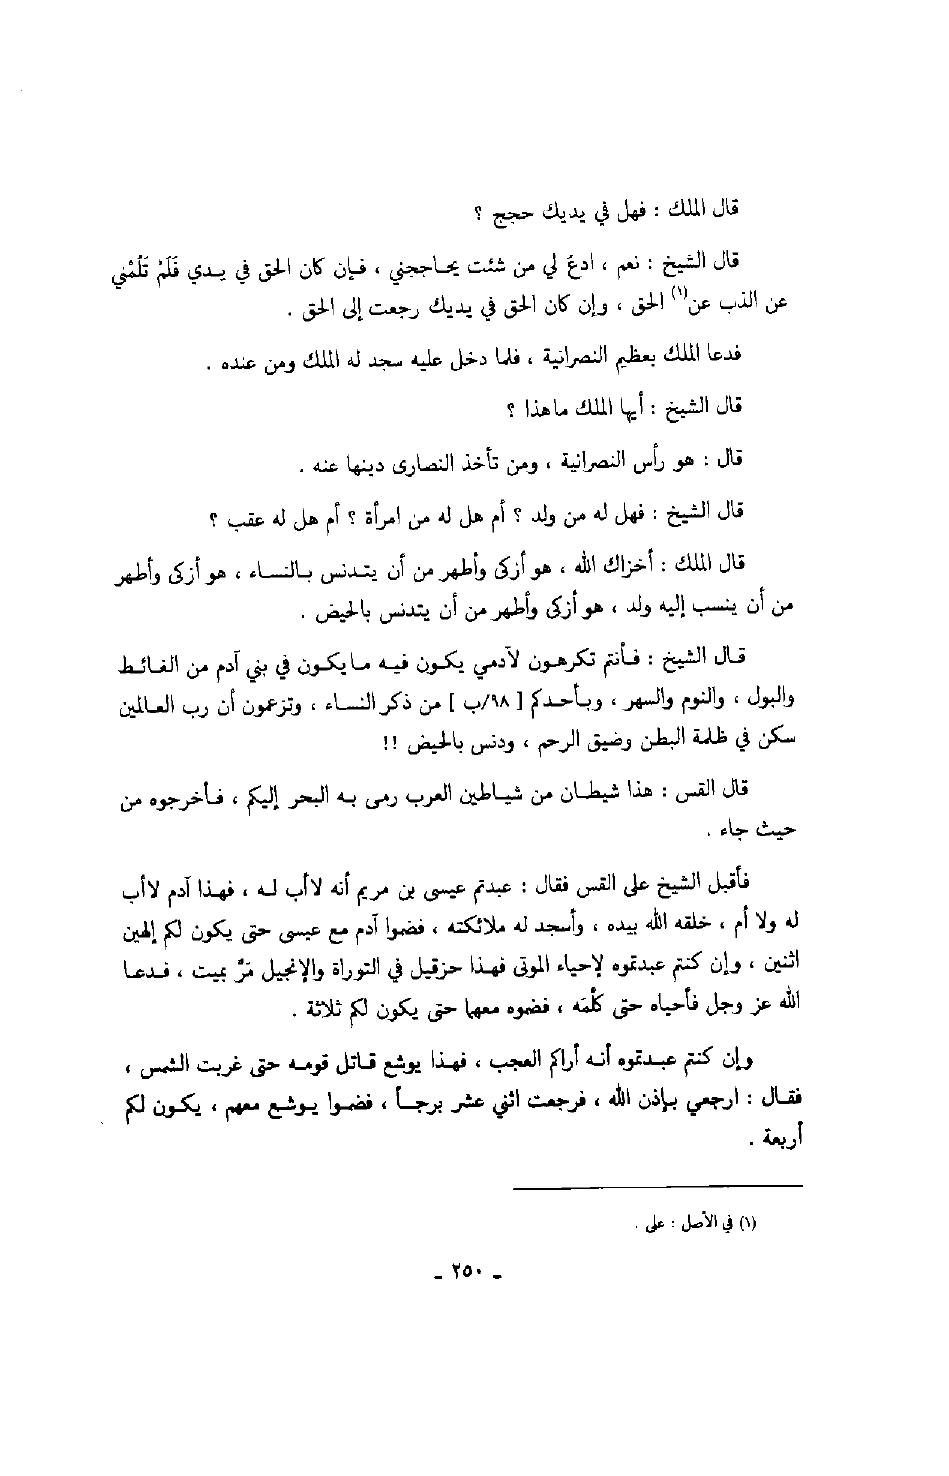 قال الملك : فهل في يديك حجج ؟
قال الشيخ : نعم ، ادعُ لي من شئت يحاججني ، فإن كان الحق في يدي فَلَمْ تَلُمْني
عن الذب عن(١) الحق ، وإن كان الحق في يديك رجعت إلى الحق .
فدعا الملك بعظيم النصرانية ، فلما دخل عليه سجد له الملك ومن عنده .
قال الشيخ : أيها الملك ماهذا ؟
قال : هو رأس النصرانية ، ومن تأخذ النصارى دينها عنه .
قال الشيخ : فهل له من ولد ؟ أم هل له من امرأة ؟ أم هل له عقب ؟
قال الملك : أخزاك الله ، هو أزكى وأطهر من أن يتدنس بالنساء ، هو أزكى وأطهر
من أن ينسب إليه ولد ، هو أزكى وأطهر من أن يتدنس بالحيض .
قال الشيخ : فأنتم تكرهون لآدمي يكون فيه مايكون في بني آدم من الغائط
والبول ، والنوم والسهر ، وبأحدكم [ ٩٨/ب ] من ذكر النساء ، وتزعمون أن رب العالمين
سكن في ظلمة البطن وضيق الرحم ، ودنس بالحيض !!
قال القس : هذا شيطان من شياطين العرب رمى به البحر إليكم ، فأخرجوه من
حيث جاء .
فأقبل الشيخ على القس فقال : عبدتم عيسى بن مريم أنه لاأب له ، فهذا آدم لاأب
له ولا أم ، خلقه الله بيده ، وأسجد له ملائكته ، فضموا آدم مع عيسى حتى يكون لكم إلهين
اثنين ، وإن كنتم عبدتموه لإحياء الموتى فهذا حزقيل في التوراة والإنجيل مَرَّ بميت ، فدعا
الله عز وجل فأحياه حتى كلَّمَه ، فضموه معهما حتى يكون لكم ثلاثة .
وإن كنتم عبدتموه أنه أراكم العجب ، فهذا يوشع قاتل قومه حتى غربت الشمس ،
فقال : ارجعي بإذن الله ، فرجعت اثني عشر برجاً ، فضموا يوشع معهم ، يكون لكم
أربعة .
(١) في الأصل : على .
ـ ٢٥٠ ـ